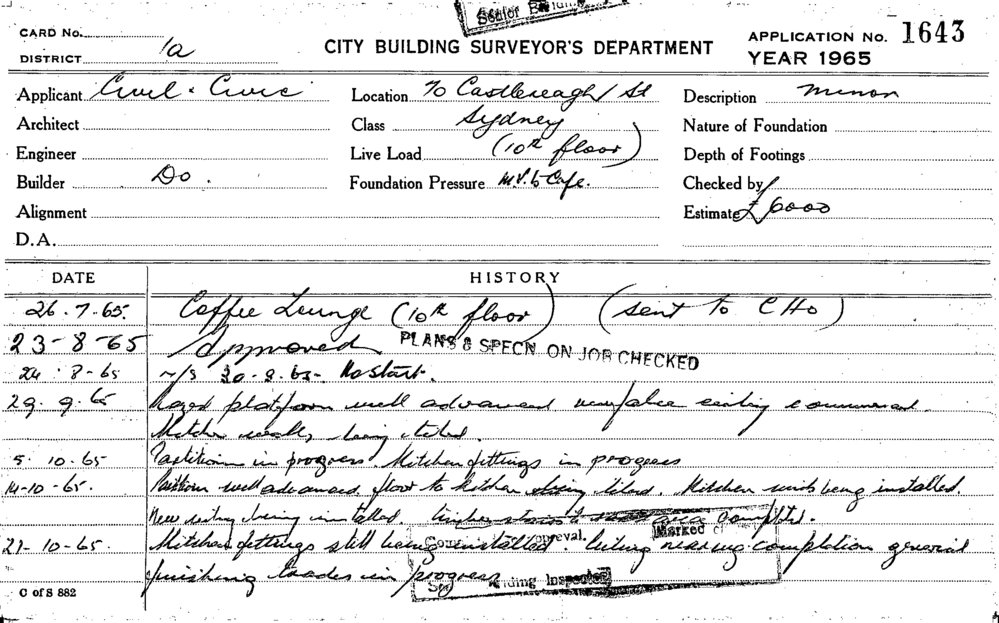 Senior Building
CARD No.
DISTRICT 1a
CITY BUILDING SURVEYOR'S DEPARTMENT
APPLICATION No. 1643
YEAR 1965
Applicant Civil & Civic
Location 70 Castlereagh St
Description minor
Architect
Class Sydney
Nature of Foundation
Engineer
Live Load (10th floor)
Depth of Footings
Builder Do.
Foundation Pressure to Cafe.
Checked by
Alignment
Estimate £6000
D.A.
DATE HISTORY
26.7.65. Coffee Lounge (10th floor) (sent to CHO)
23-8-65 Approved PLANS & SPECN. ON JOB CHECKED
24.8-65 n/s 30-8.65- No Start.
29.9.65 platform well advanced new false ceiling commenced.
Kitchen walls being tiled.
5.10-65 Partitions in progress. Kitchen fittings in progress
14-10-65. Partitions well advanced. floor to Kitchen tiled. Kitchen units being installed.
New ceiling being installed. completed.
Marked
21-10-65. Kitchen fittings still being installed. Ceiling nearing completion general
finishing trades in progress
Building Inspector
C of S 882